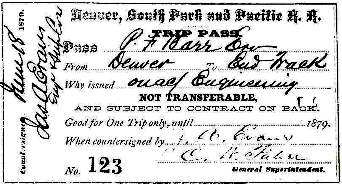 Denver, South Park and Pacific R. R.
TRIP PASS.
Pass P. F. Barr Esq
From Denver to End Track
Why issued on acf Engineering
NOT TRANSFERABLE,
AND SUBJECT TO CONTRACT ON BACK.
Good for One Trip only, until 1879.
When countersigned by A. Evans
C. W. Fisher
No. 123 General Superintendent.
Countersigned June 18 1879.